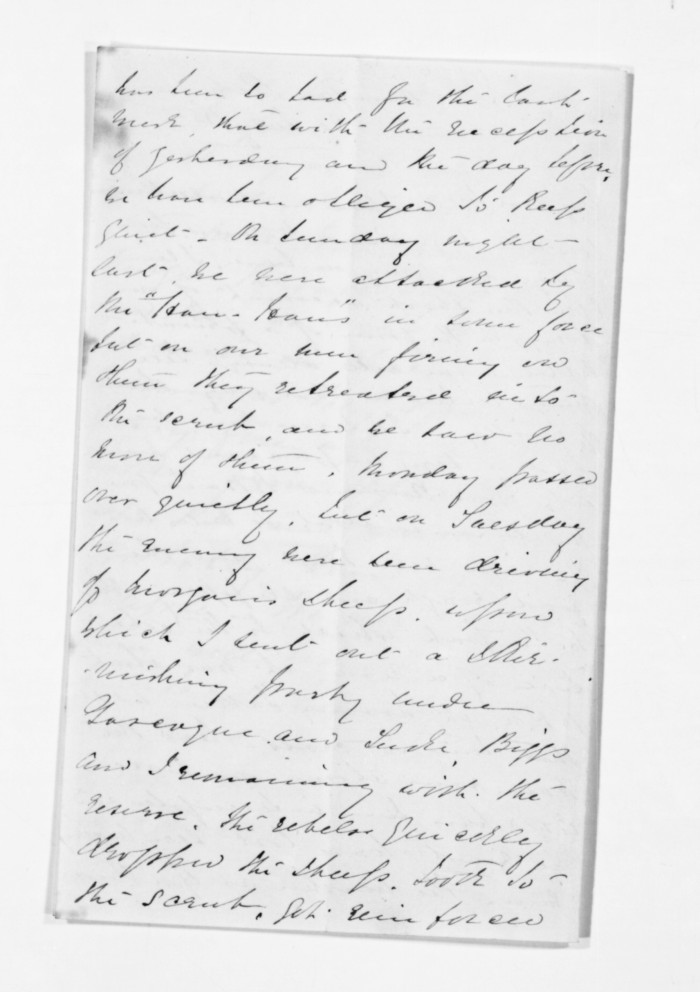 has been so bad for the last
week, that with the exception
of yesterday and the day before,
we have been obliged to keep
quiet - On Sunday night -
last, we were attacked by
the "Hau-Haus" in some force
but on our men firing on
them they retreated into
the scrub, and we saw no
more of them. Monday passed
over quietly, but on Tuesday
the enemy were seen driving
off Morgan's sheep. upon
which I sent out a skir-
-mishing party under
Gascoyne and Lieut. Biggs
and I remaining with the
reserve. The rebels quickly
dropped the sheep. took to
the scrub, got reinforced